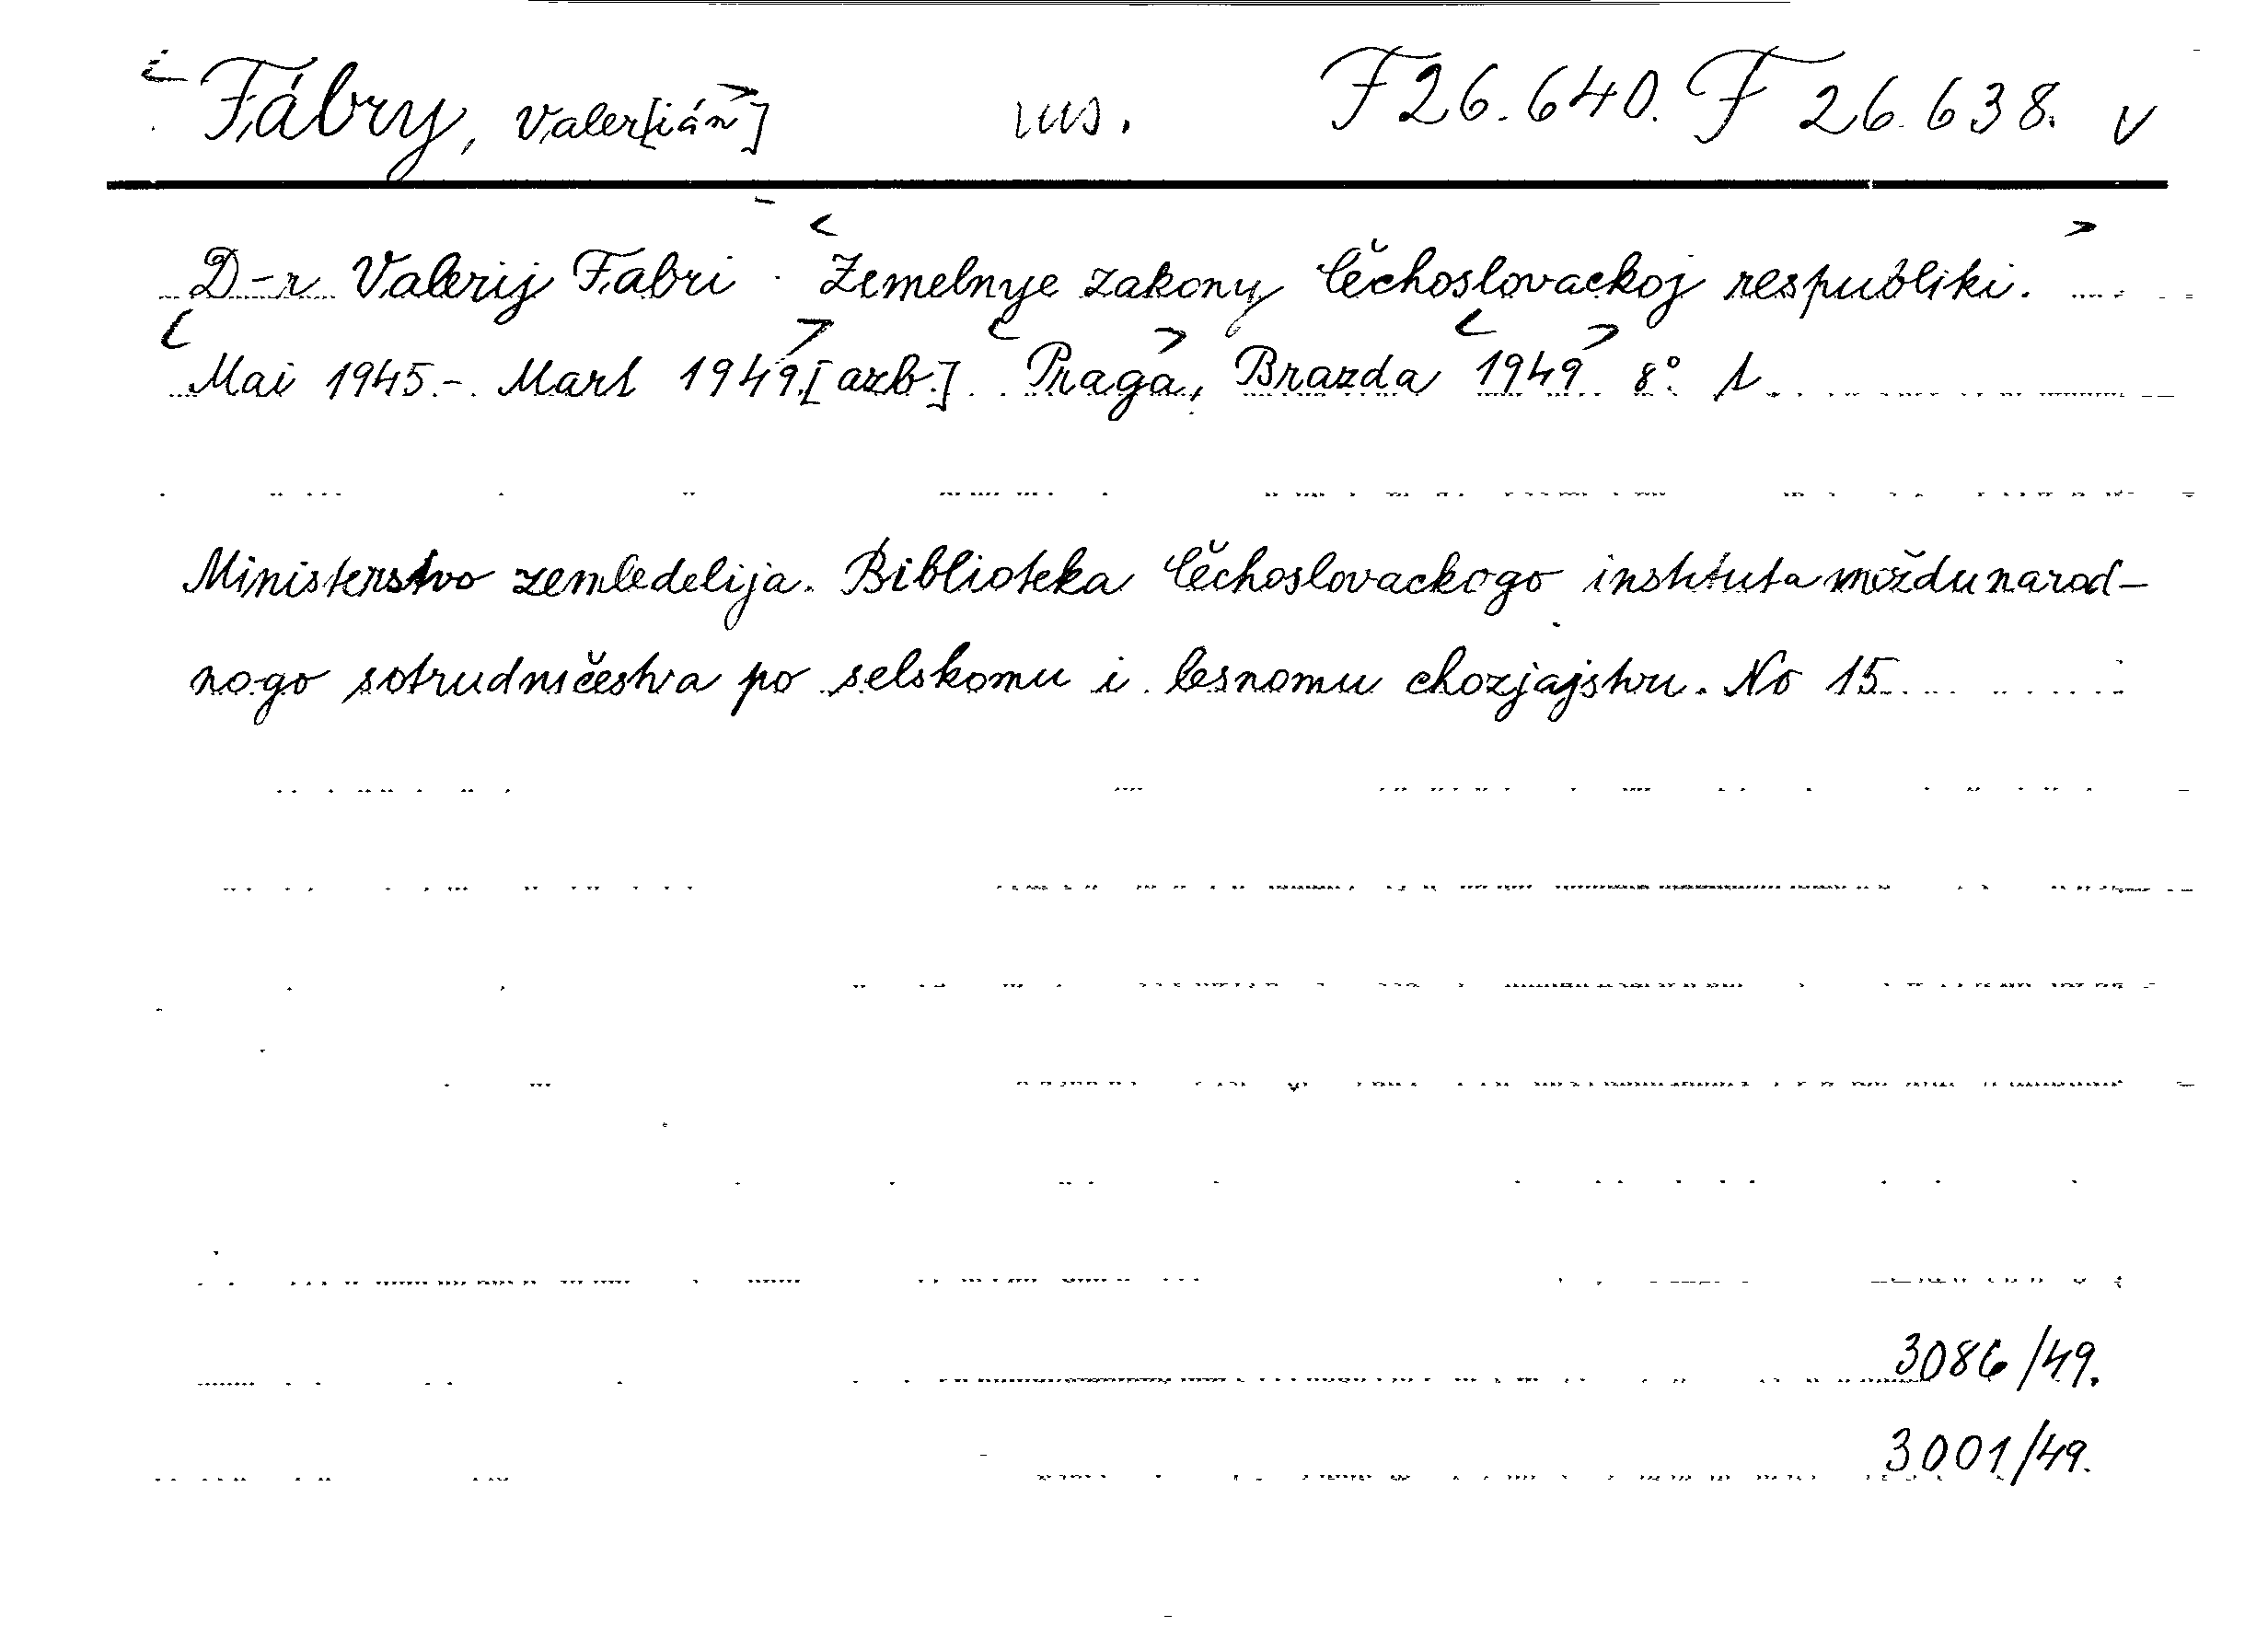 <Fábry, Valer[ián>] rus. F 26.640. F 26.638. v
D-r Valerij Fabri <Zemelnye zakony Čechoslovackoj respubliki.>
<Mai 1945.- Mart 1949>.[azb.] <Praga>, Brazda <1949> 8°. 1.
Ministerstvo zemledelija. Biblioteka Čechoslovackogo instituta meždunarod-
nogo sotrudničestva po selskomu i lesnomu chozjajstvu. No 15
3086/49.
3001/49.